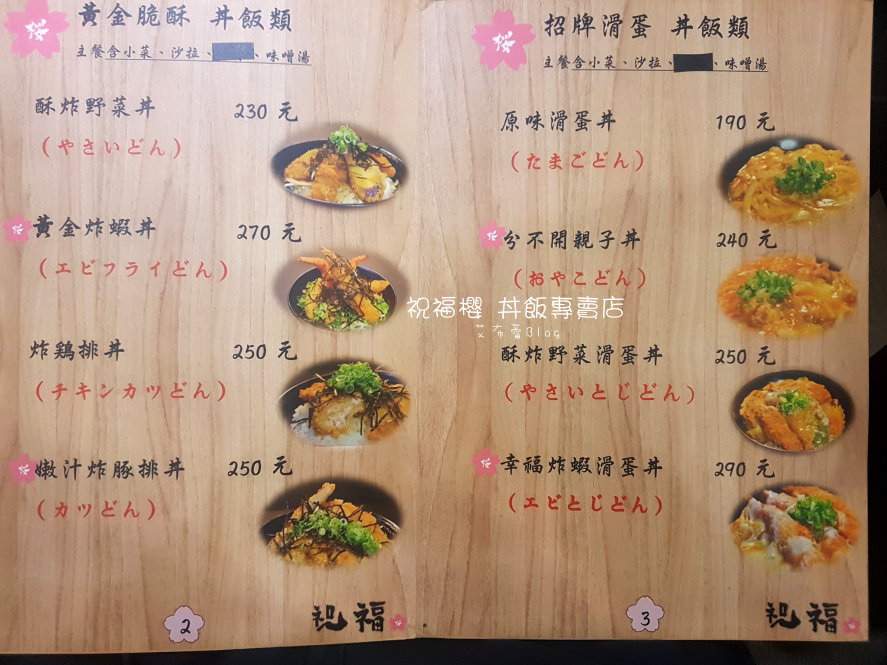 櫻 黃金脆酥 丼飯類
主餐含小菜、沙拉、、味噌湯
酥炸野菜丼 230 元
（やさいどん）
櫻 黃金炸蝦丼 270 元
（エビフライどん）
炸鶏排丼 250 元
（チキンカツどん）
櫻 嫩汁炸豚排丼 250 元
（カツどん）
2
祝福
櫻 招牌滑蛋 丼飯類
主餐含小菜、沙拉、、味噌湯
原味滑蛋丼 190 元
（たまごどん）
櫻 分不開親子丼 240 元
（おやこどん）
祝福櫻 丼飯專賣店
艾布蕾Blog
酥炸野菜滑蛋丼 250 元
（やさいとじどん）
櫻 幸福炸蝦滑蛋丼 290 元
（エビとじどん）
3
祝福